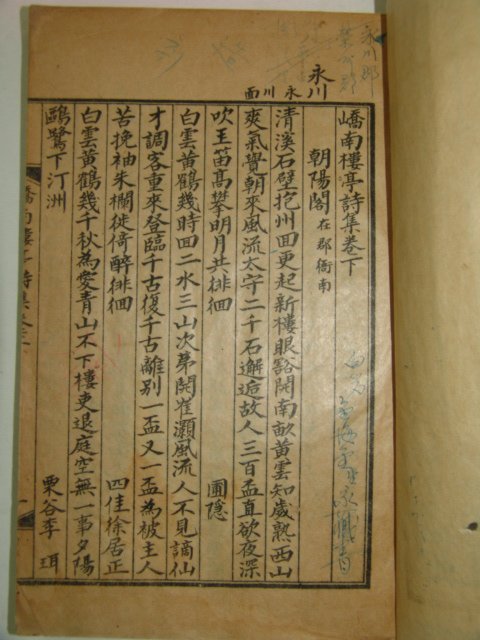 永川
永川面
嶠南樓亭詩集卷下
朝陽閣 在郡衙南
清溪石壁抱州回更起新樓眼豁開南畝黃雲知歲熟西山
爽氣覺朝來風流太守二千石邂逅故人三百盃直欲夜深
吹玉笛高攀明月共徘徊 圃隱
白雲黃鶴幾時回二水三山次第開崔灝風流人不見謫仙
才調客重來登臨千古復千古離別一盃又一盃為被主人
苦挽袖朱欄徙倚醉徘徊 四佳徐居正
白雲黃鶴幾千秋為愛青山不下樓吏退庭空無一事夕陽
鷗鷺下汀洲 栗谷李珥
嶠南樓亭詩集卷下 一
永川郡